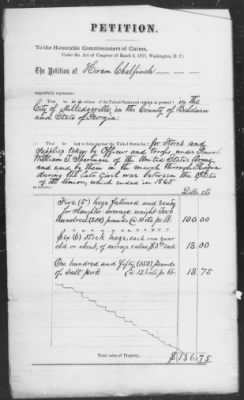 PETITION.
To the Honorable Commissioners of Claims,
Under the Act of Congress of March 3, 1871, Washington, D. C.:
The Petition of Hiram Chalfinch
respectfully represents:
in the
City of Milledgeville, in the County of Baldwin
and State of Georgia
for Stock and
Supplies taken by Officers and troops under General
William T. Sherman of the United States Army,
and used by them on the march through Georgia
during the late Civil war between the States
of the Union, which ended in 1865
Dolls cts
Five (5) hogs fattened and ready
for slaughter average weight Two
Hundred (200) pounds @ 10 cts pr lb 100.00
Six (6) Stock hogs, each one year
old or about, of average value $3 each 18.00
One hundred and Fifty (150) pounds
of Salt pork @ 12½ cts pr lb. 18.75
Total value of Property, $136.75